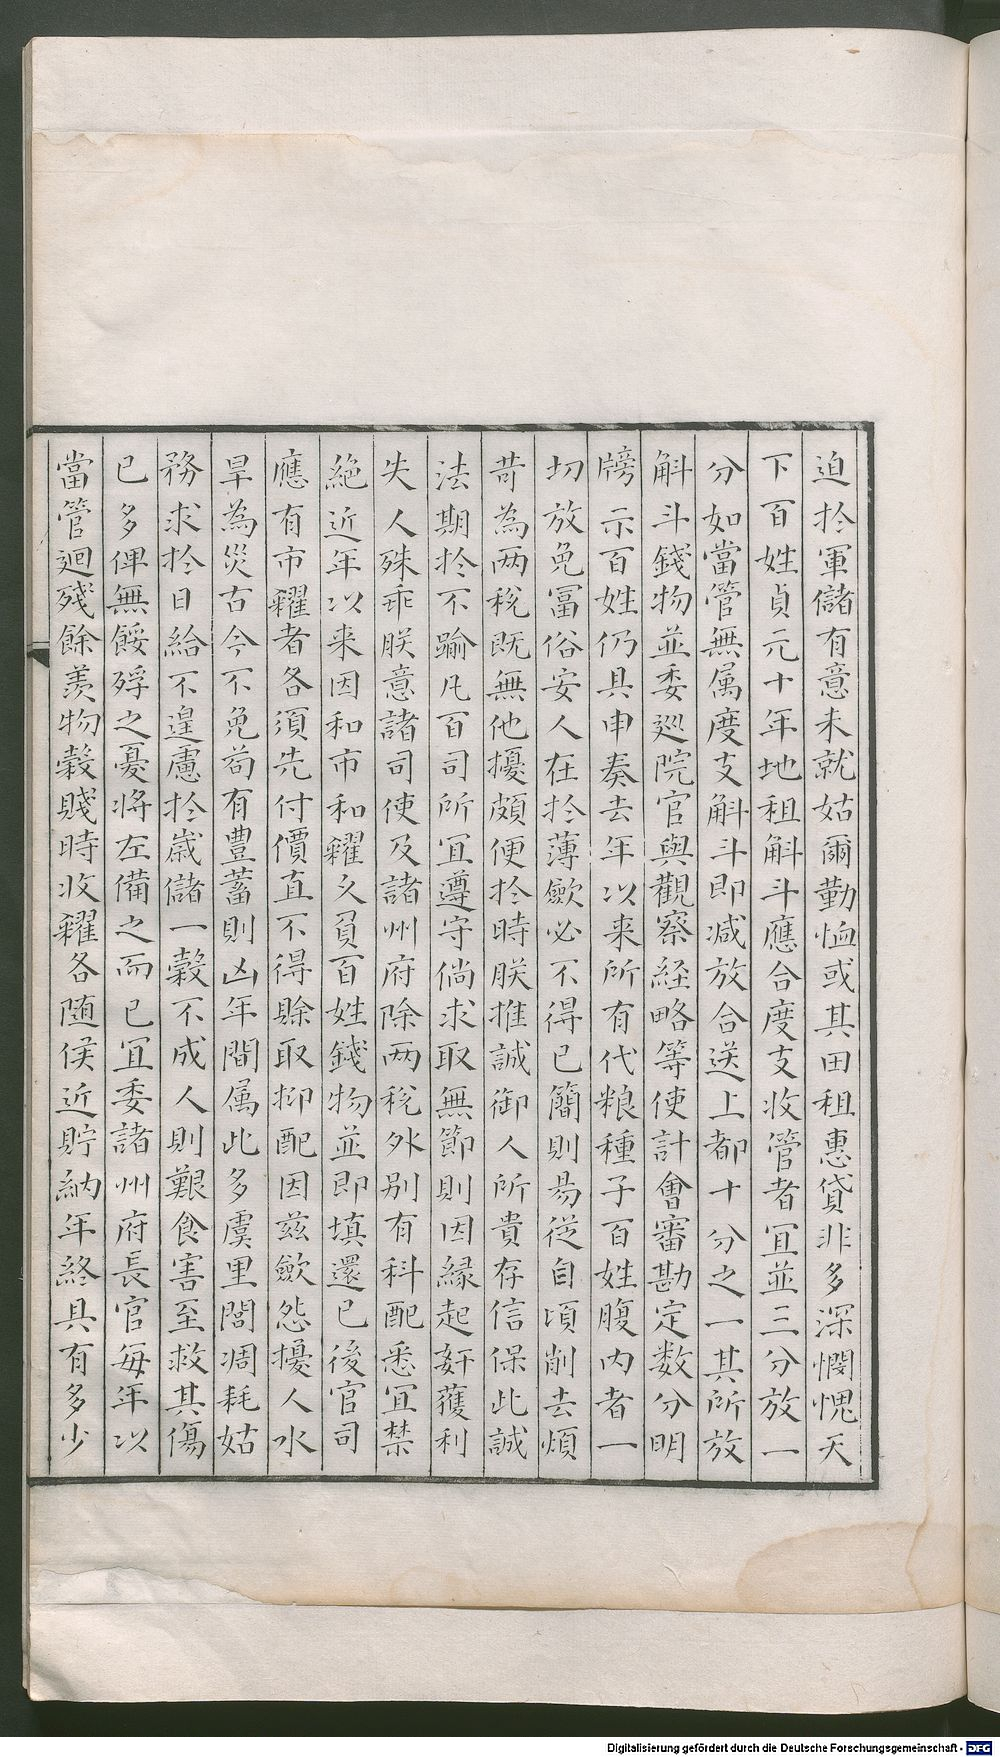 迫於軍儲有意未就姑爾勤恤或其田租惠貸非多深憫愧天
下百姓貞元十年地租斛斗應合度支收管者宜並三分放一
分如當管無属度支斛斗即减放合送上都十分之一其所放
斛斗錢物並委巡院官與觀察経略等使計會審勘定数分明
牓示百姓仍具申奏去年以来所有代粮種子百姓腹内者一
切放免冨俗安人在於薄歛必不得已簡則易從自頃削去煩
苛為两稅既無他擾頗便於時朕推誠御人所貴存信保此誠
法期於不踰凡百司所宜遵守倘求取無節則因縁起奸蒦利
失人殊乖朕意諸司使及諸州府除两稅外别有科配悉宜禁
絶近年以来因和市和糴久負百姓錢物並即填還已後官司
應有市糴者各須先付價直不得賖取抑配因兹歛怨擾人水
旱為災古今不免苟有豊蓄則凶年間属此多虞里閭凋耗姑
務求於目給不遑慮於歲儲一糓不成人則艱食害至救其傷
已多俾無餒殍之憂将左備之而已宜委諸州府長官每年以
當管廻殘餘羨物糓賤時收糴各随便近貯納年終具有多少
Digitalisierung gefördert durch die Deutsche Forschungsgemeinschaft - DFG